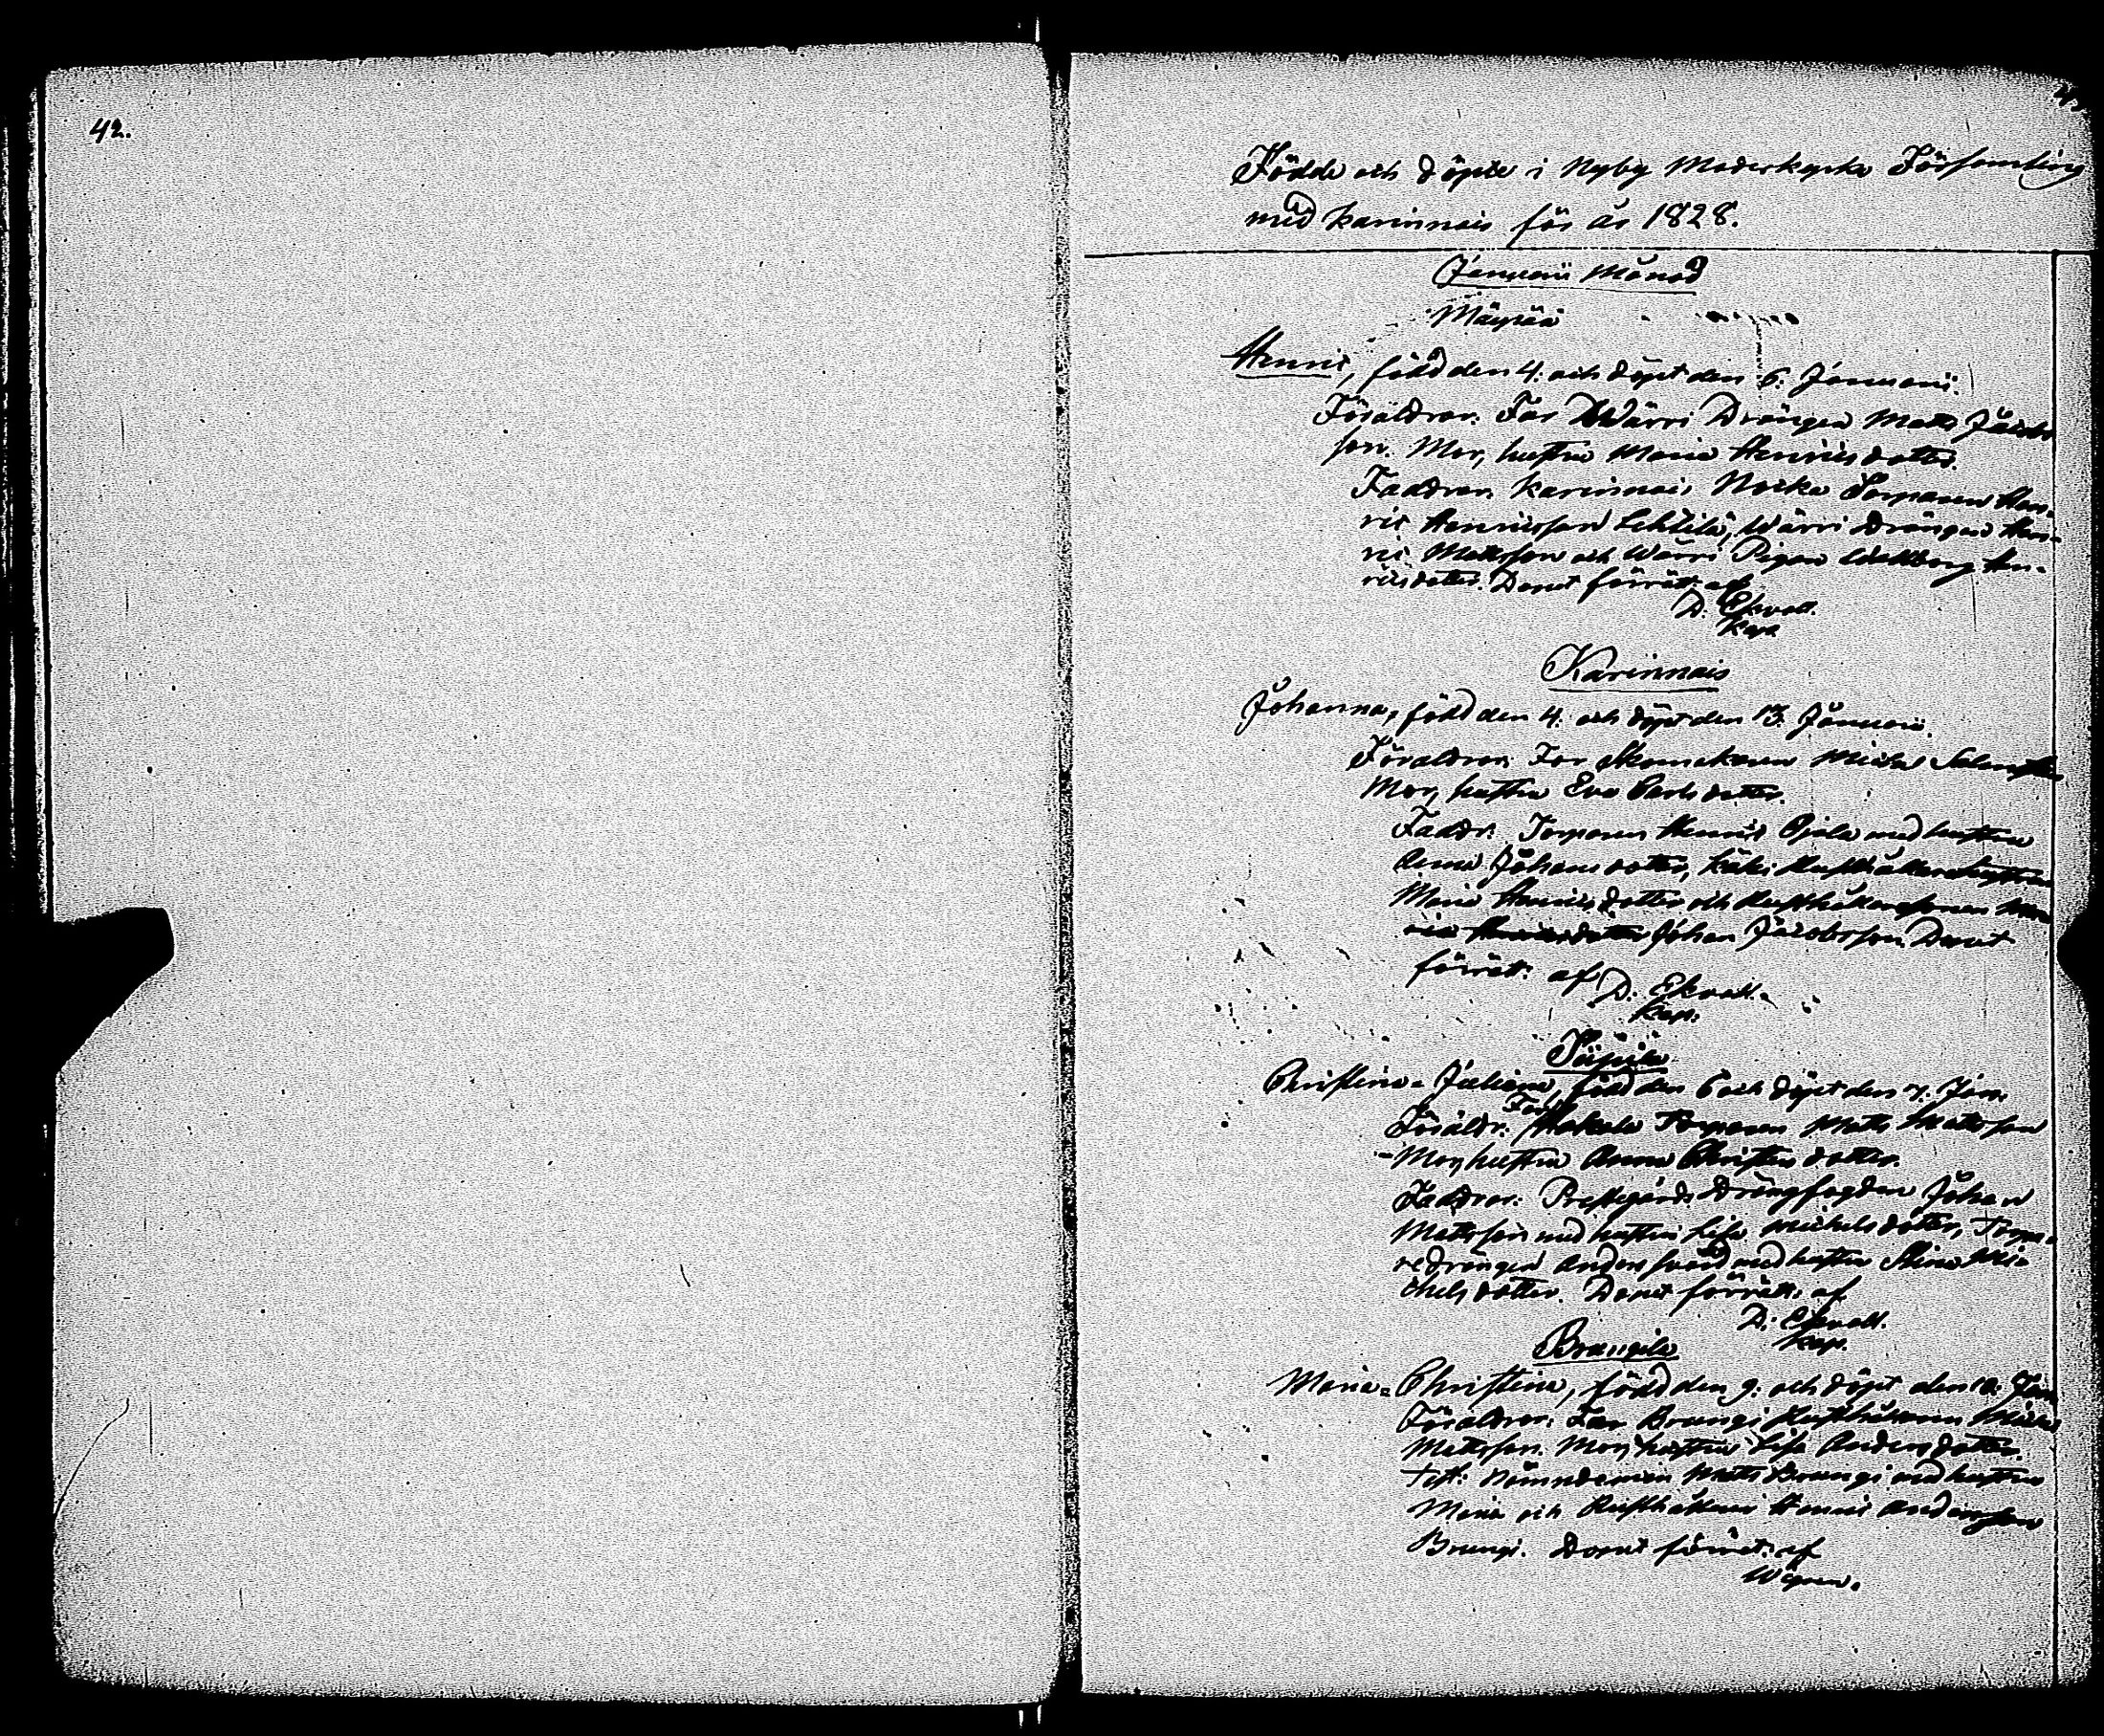 42.
Födde och döpte i Nyby Moderkyrko Församling
med Karinnais för år 1828.
Januarii Månad
Mäyrää
Henric, född den 4. och döpt den 6. Januarii.
Föräldrar. Far Wärri Drängen Matts Jacobs
son. Mor, hustru Maria Henricsdotter.
Faddrar. Karinnais Torparen Hen-
ric Henricsson Lehtilä, Wärri Drängen Hen-
ric Mattsson och Wärri Pigan Wallborg Hen-
ricsdotter. Doput förrät: af
D. Ekvall.
Kap.
Karinnais
Johanna, född den 4. och döpt den 13. Januarii.
Föräldrar. Far Skomakaren Michel
Mor, hustru Eva Carlsdotter.
Faddr. Torparen Henric Ojala med hustru
Anna Johansdotter, Käki Rusthållarehustrun
Maria Henricsdotter och Rusthållaresonen
Johan Jacobsson. Doput
förrät: af
D. Ekvall.
Kap.
Christina-Juliana, född den 6 och döpt den 7. Jan.
Föräldr. Far Torparen Matts Mattsson
Mor, hustru Anna Christersdotter.
Faddrar: Prestegårds Drängfogden Johan
Mattsson med hustru Lisa Michelsdotter, Torpa-
redrängen Anders Svärd med hustru Stina Mi-
chelsdotter. Doput förrätt: af
D. Ekvall.
Kap.
Braugila
Maria-Christina, född den 9. och döpt den 10. Jan
Föräldrar. Far Braugi Rusthållaren Michel
Mattsson. Mor, hustru Lisa Andersdotter.
Test: Nämndeman Matts Braugi med hustru
Maria och Rusthållaren Henric Andersson
Braugi. Doput förrät: af